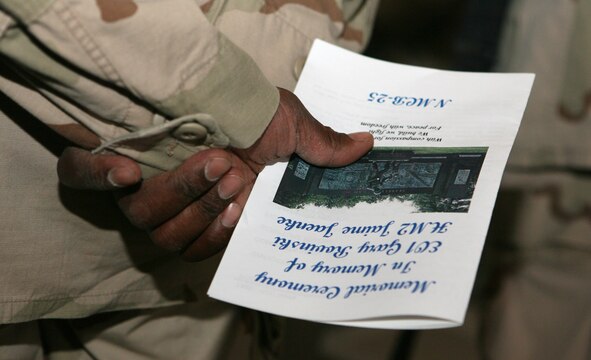 Memorial Ceremony
In Memory of
EO1 Gary Rovinski
HM2 Jaime Jaenke
With compassion for
We build, we fight
For peace, with freedom
NMCB-25